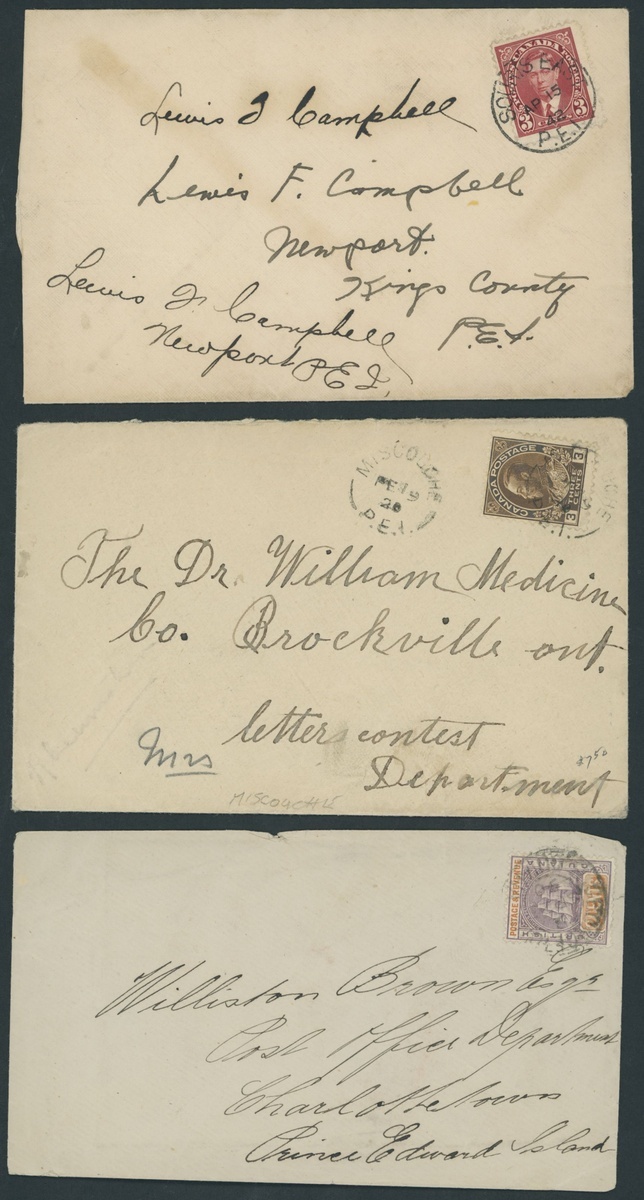 POSTES CANADA POSTAGE
3 3
SOURIS EAST
AP 15
42
P.E.I.
Lewis F Campbell
Lewis F. Campbell
Newport.
Kings County
P.E.I.
Lewis F. Campbell
Newport P E I,
MISCOUCHE
FE 19
P.E.I.
CANADA POSTAGE
3 THREE CENTS 3
The Dr. William Medicine
Co. Brockville ont.
letters contest
Department
Mrs
$7.50
MISCOUCHE
POSTAGE & REVENUE
BRITISH
Williston Brown Esqr
Post Office Department
Charlottetown
Prince Edward Island